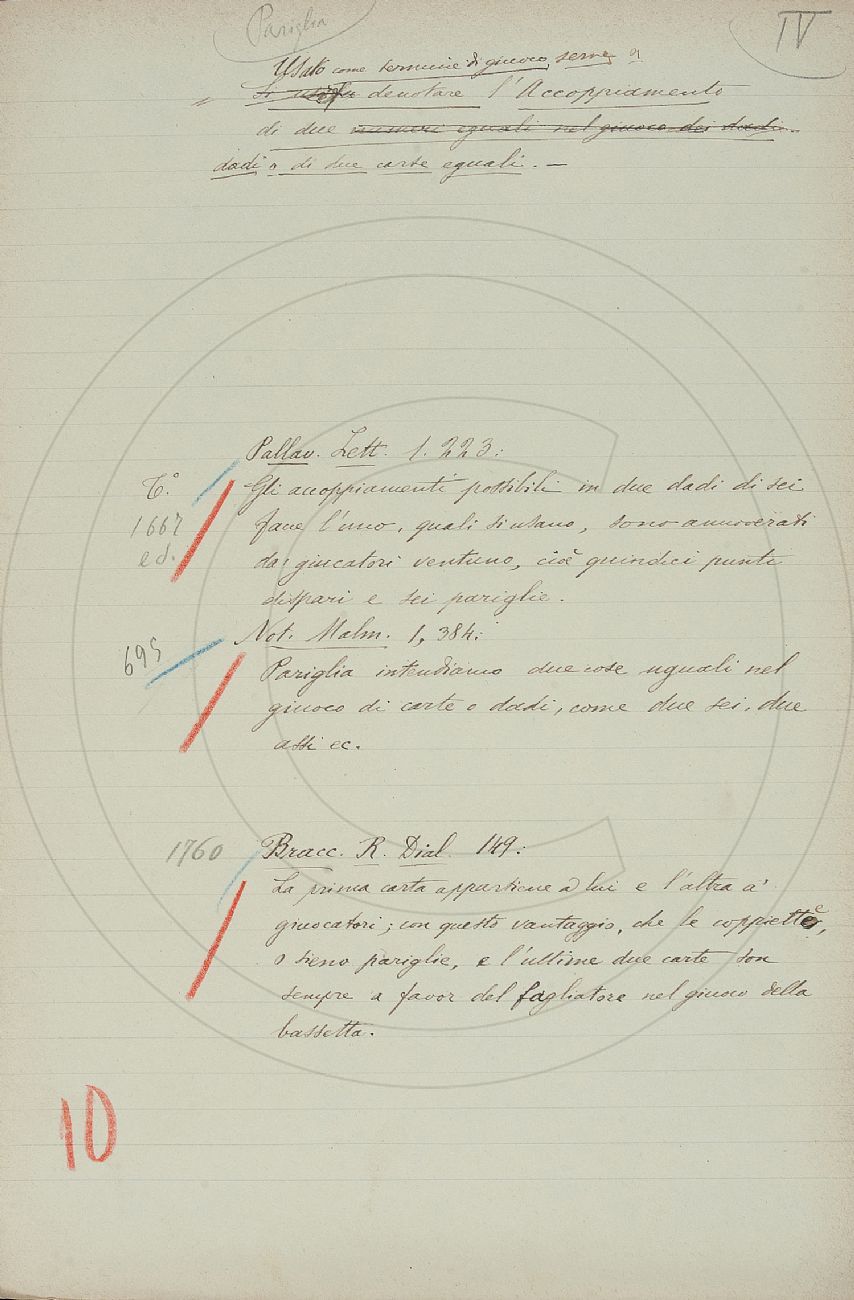 Pariglia
IV
Usato come termine di giuoco, serve a
Si usa denotare l'Accoppiamento
di due numeri eguali nel giuoco dei dadi.
dadi o di due carte eguali. —
Pallav. Lett. 1. 223:
T.°
1667
ed.
Gli accoppiamenti possibili in due dadi di sei
facce l'uno, quali si usano, sono annoverati
da' giucatori ventuno, cioè quindici punti
dispari e sei pariglie.
695
Not. Malm. 1, 384:
Pariglia intendiamo due cose uguali nel
giuoco di carte o dadi, come due sei, due
assi ec.
1760
Bracc. R. Dial. 149:
La prima carta appartiene a lui e l'altra a'
giuocatori; con questo vantaggio, che le coppiette,
o sieno pariglie, e l'ultime due carte son
sempre a favor del tagliatore nel giuoco della
bassetta.
10